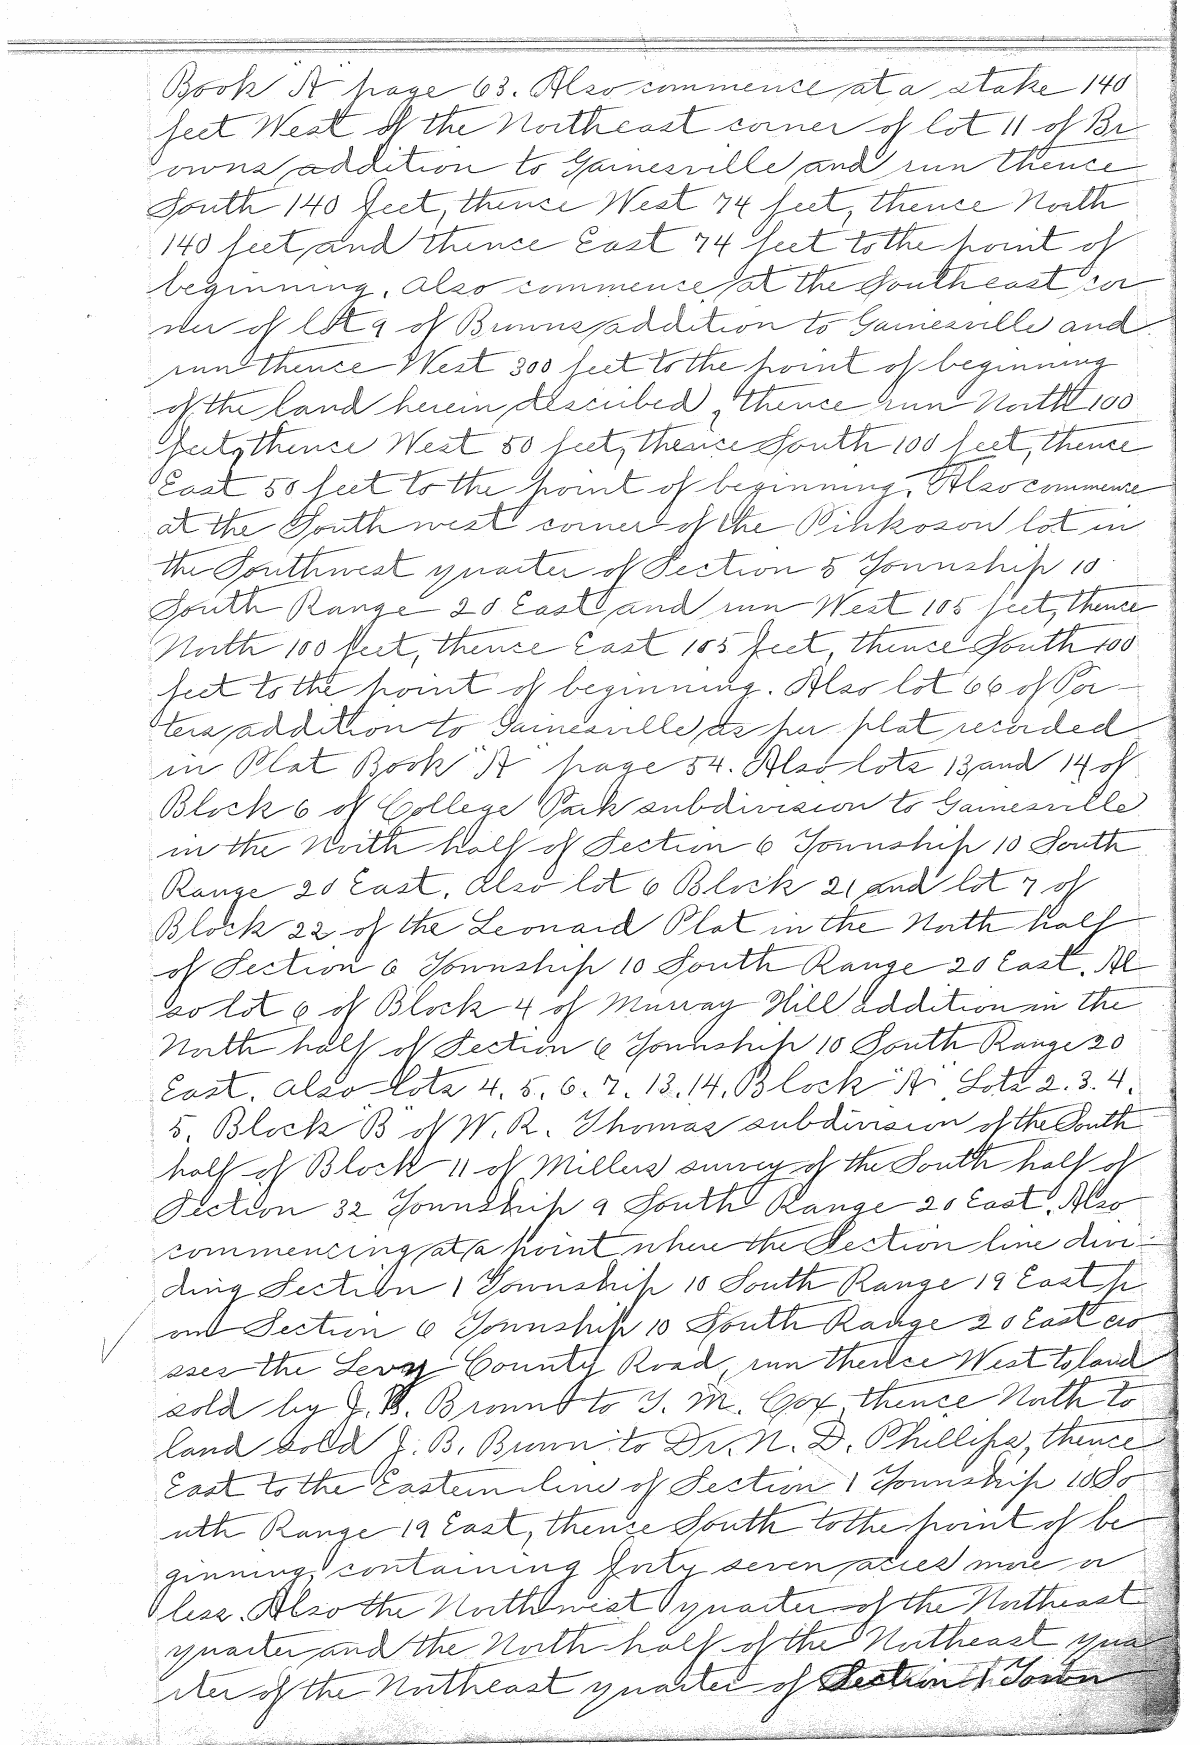 Book "A" page 63. Also commence at a stake 140
feet West of the Northeast corner of lot 11 of Br
owns addition to Gainesville and run thence
South 140 feet, thence West 74 feet, thence North
140 feet and thence East 74 feet to the point of
beginning. Also commence at the Southeast cor
ner of lot 9 of Browns addition to Gainesville and
run thence West 300 feet to the point of beginning
of the land herein described, thence run North 100
feet, thence West 50 feet, thence South 100 feet, thence
East 50 feet to the point of beginning. Also commence
at the Southwest corner of the Pinkoson lot in
the Southwest quarter of Section 5 Township 10
South Range 20 East and run West 105 feet, thence
North 100 feet, thence East 105 feet, thence South 100
feet to the point of beginning. Also lot 66 of Por-
ters addition to Gainesville as per plat recorded
in Plat Book "A" page 54. Also lots 13 and 14 of
Block 6 of College Park subdivision to Gainesville
in the North half of Section 6 Township 10 South
Range 20 East. Also lot 6 Block 21 and lot 7 of
Block 22 of the Leonard Plat in the North half
of Section 6 Township 10 South Range 20 East. Al
so lot 6 of Block 4 of Murray Hill addition in the
North half of Section 6 Township 10 South Range 20
East. Also lots 4. 5. 6. 7. 13. 14. Block "A" Lots 2. 3. 4.
5. Block "B" of W. R. Thomas subdivision of the South
half of Block 11 of Millers survey of the South half of
Section 32 Township 9 South Range 20 East. Also
commencing at a point where the Section line divi-
ding Section 1 Township 10 South Range 19 East fr
om Section 6 Township 10 South Range 20 East cro
sses the Levy County Road, run thence West to land
sold by J. B. Brown to T. M. Cox, thence North to
land sold J. B. Brown to Dr. N. D. Phillips, thence
East to the Eastern line of Section 1 Township 10 So
uth Range 19 East, thence South to the point of be
ginning, containing forty seven acres more or
less. Also the Northwest quarter of the Northeast
quarter and the North half of the Northeast qua
rter of the Northeast quarter of Section 1 Town